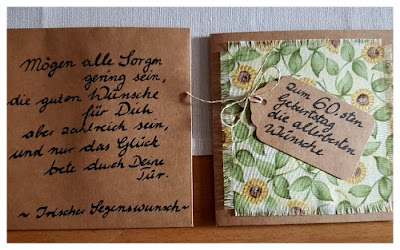 Mögen alle Sorgen
gering sein,
die guten Wünsche
für Dich
aber zahlreich sein,
und nur das Glück
trete durch Deine
Tür.
~ Irischer Segenswunsch ~
zum 60.sten
Geburtstag
die allerbesten
Wünsche